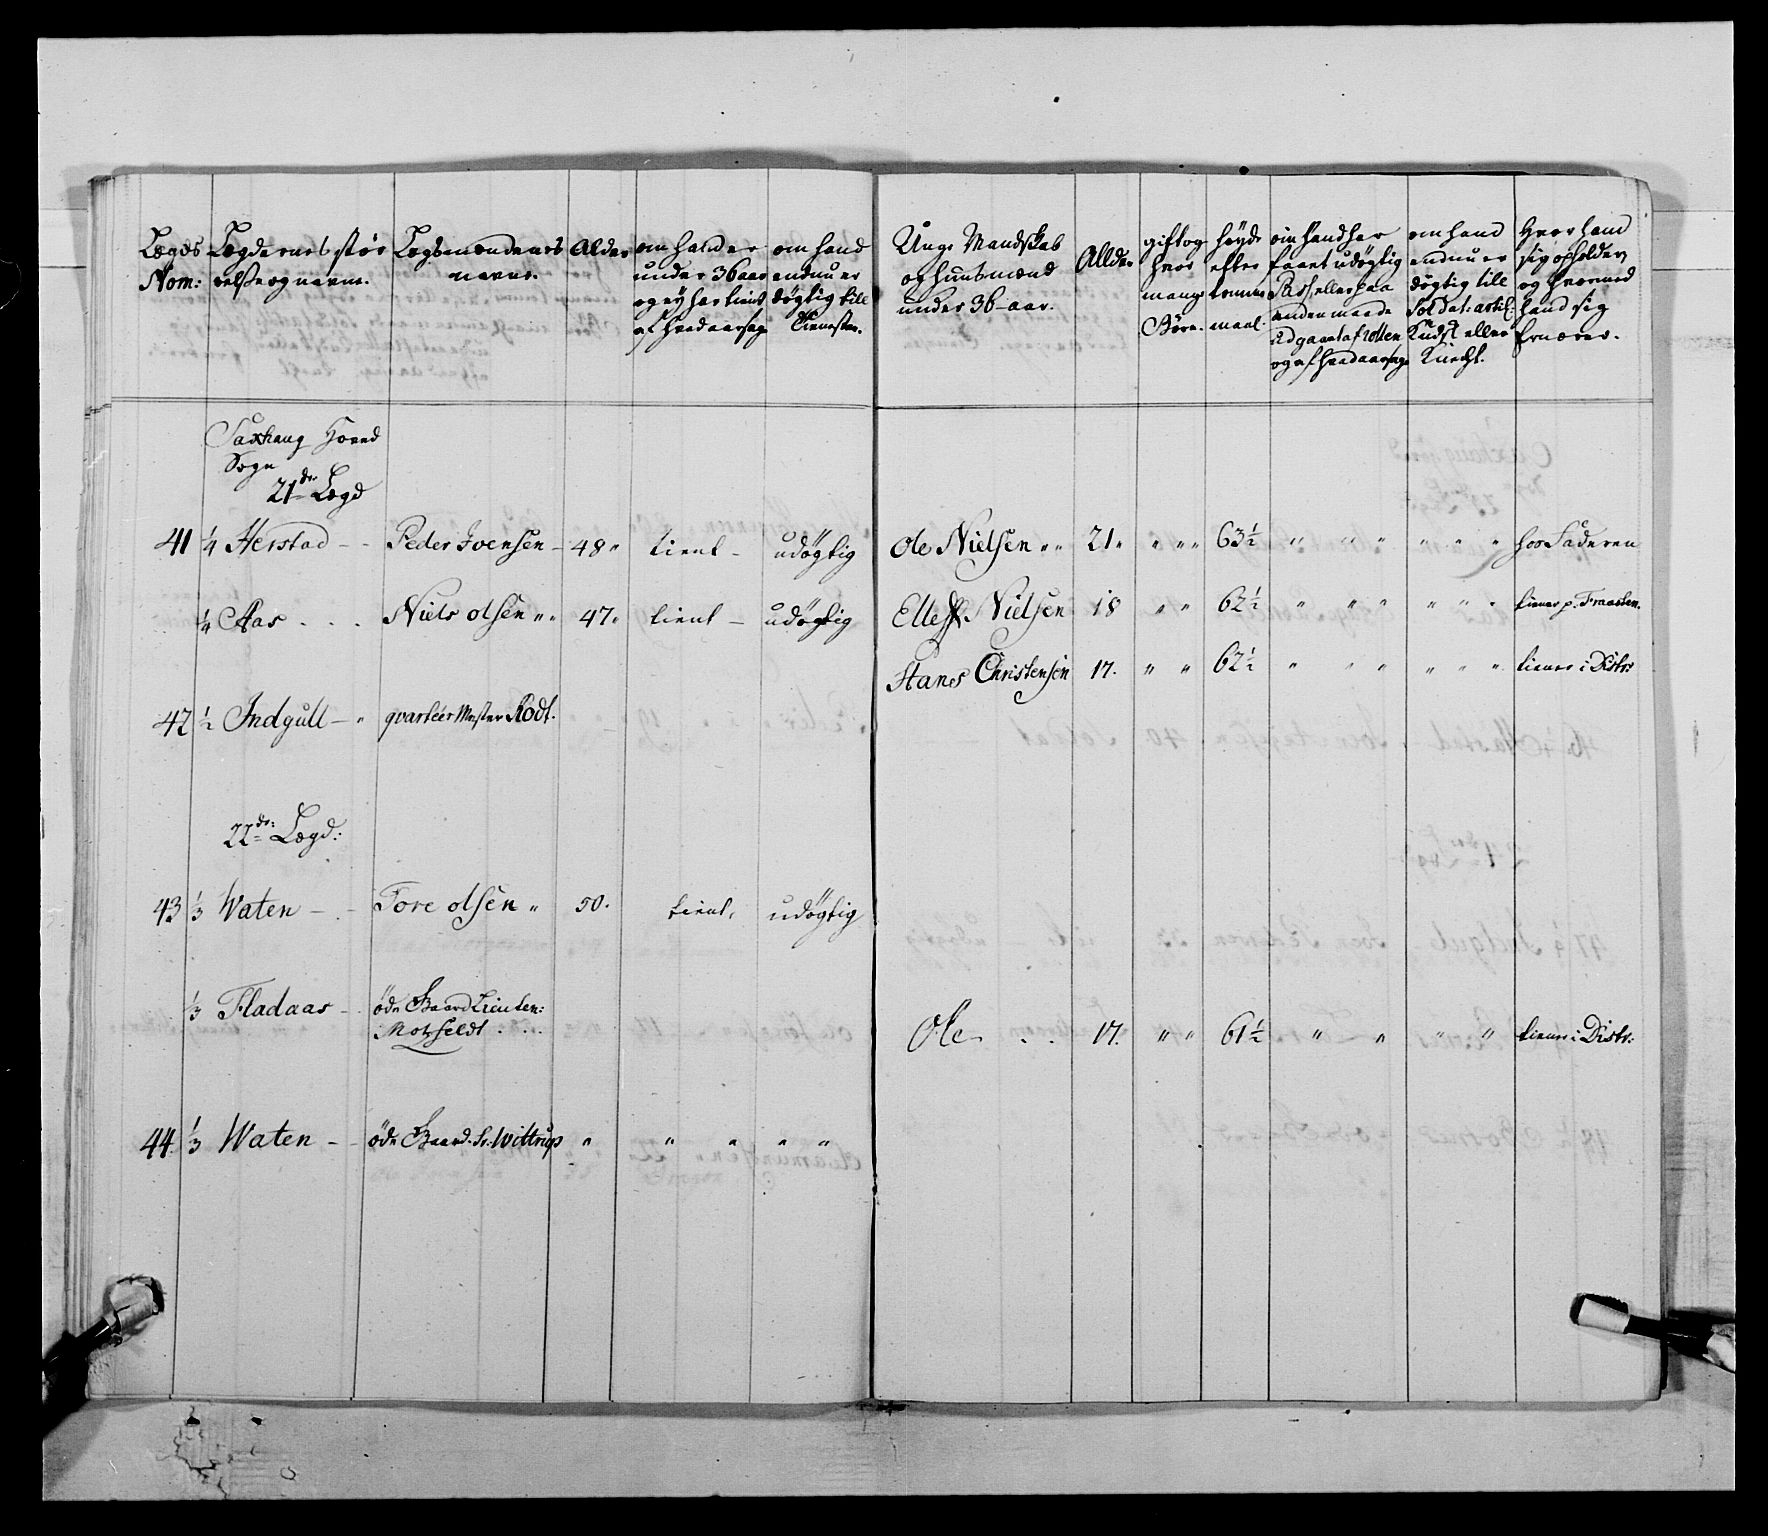 Lægds Nom:
Lægdernes størrelse og navne.
Lægdsmændenes navne.
Alder
om hand er under 36 aar og ey har tient
om hand endnu er døgtig till Tieneste.
Unge Mandskab og huusmænd under 36 aar.
Allder
gift og hvor mange Børn.
høyde efter tomme maal.
om hand har faaet udøgtig Pass, eller paa anden maade udgaaet af rollen og af hvad aarsag
om hand endnu er døgtig till Soldat, eller Knecht.
Hvor hand sig opholder og hvormed hand sig ernærer.
Saxhaug Hoved
Sogn
21de Lægd
41 1/4 Herstad - - Peder Joensen - 48 " tient - udøgtig Ole Nielsen " " 21 " " " " 63 1/2 " " " " " " hos Faderen
1/4 Aas . . . Niels olsen " " 47 " tient - udøgtig Nielsen 18 " " 62 1/2 " " " " " " tiener p. Fraasten.
Hans Christensen 17. " " 62 1/2 " " " " " " tiener i Distr:
42 1/2 Indgull - " qvarteer Mester Rodt.
22de: Lægd:
43 1/3 Waten - . - Tore olsen " 50. tient, udøgtig
1/3 Fladaas - - öde Gaard Lieuten:
Motzfeldt . . . Ole . . 17. " " 61 1/2 " " " " tiener i Distr:
44 1/3 Waten - - öde Gaard. Wittrup " " " " "